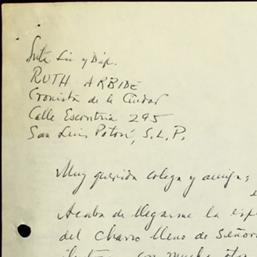 Srta. Lic y Dip.
RUTH ARBIDE
Cronista de la Ciudad
Calle Escontria 295
San Luis Potosí, S.L.P.
Muy querida colega y amiga
Acaba de llegarme la
del Charro lleno de Señor
con mucho